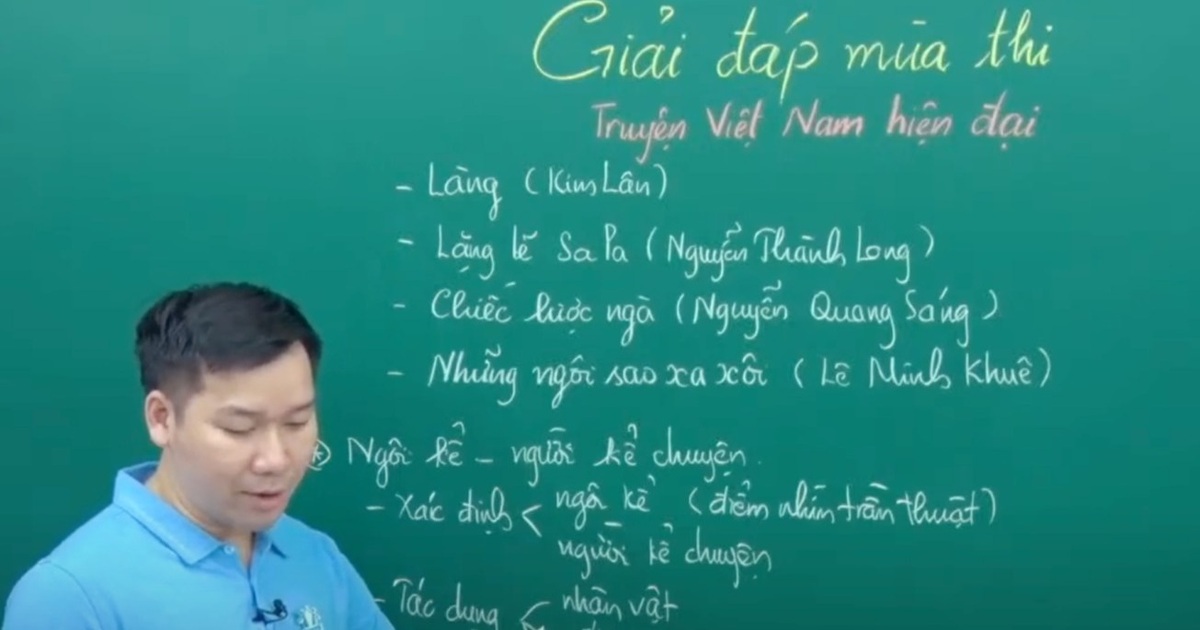 Giải đáp mùa thi
Truyện Việt Nam hiện đại
- Làng (Kim Lân)
- Lặng lẽ Sa Pa (Nguyễn Thành Long)
- Chiếc lược ngà (Nguyễn Quang Sáng)
- Những ngôi sao xa xôi (Lê Minh Khuê)
Ngôi kể - người kể chuyện.
- Xác định < ngôi kể (điểm nhìn trần thuật)
người kể chuyện
- Tác dụng < nhân vật